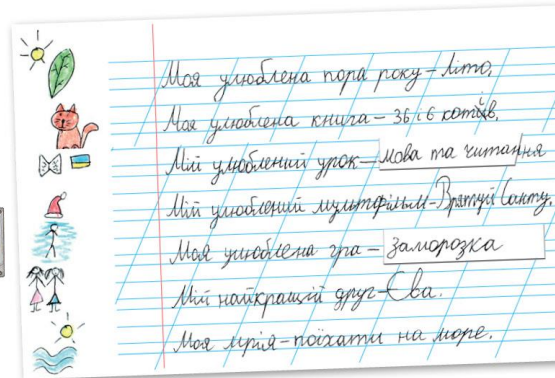 Моя улюблена пора року – літо.
Моя улюблена книга – 36 і 6 котів.
Мій улюблений урок – мова та читання
Мій улюблений мультфільм – Врятуй Санту.
Моя улюблена гра – заморозка
Мій найкращій друг – Єва.
Моя мрія – поїхати на море.